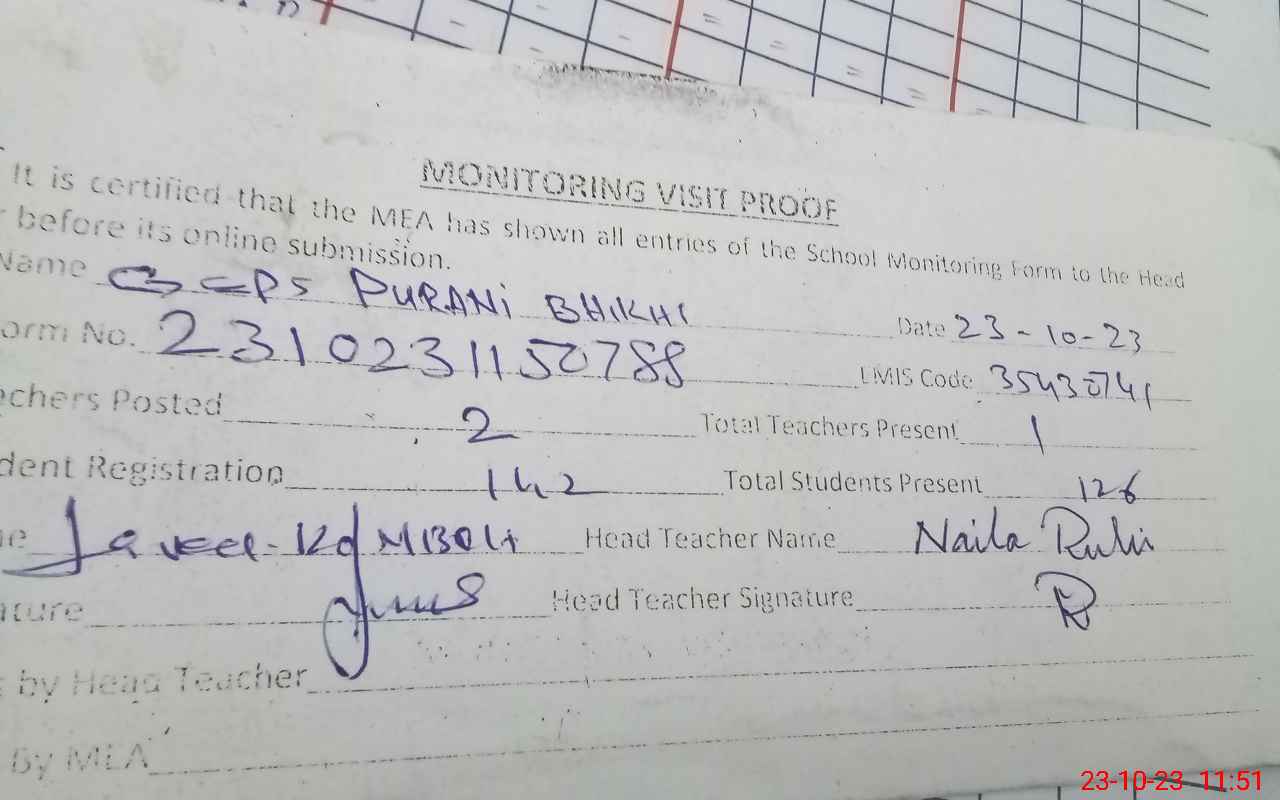 MONITORING VISIT PROOF
It is certified that the MEA has shown all entries of the School Monitoring Form to the Head
before its online submission.
Name GGPS PURANI BHIKHI Date 23-10-23
orm No. 23102311150788 EMIS Code 35430741
chers Posted 2 Total Teachers Present 1
dent Registration 142 Total Students Present 126
Head Teacher Name Naila Rubi
ature Head Teacher Signature
by Head Teacher
By MEA
23-10-23 11:51